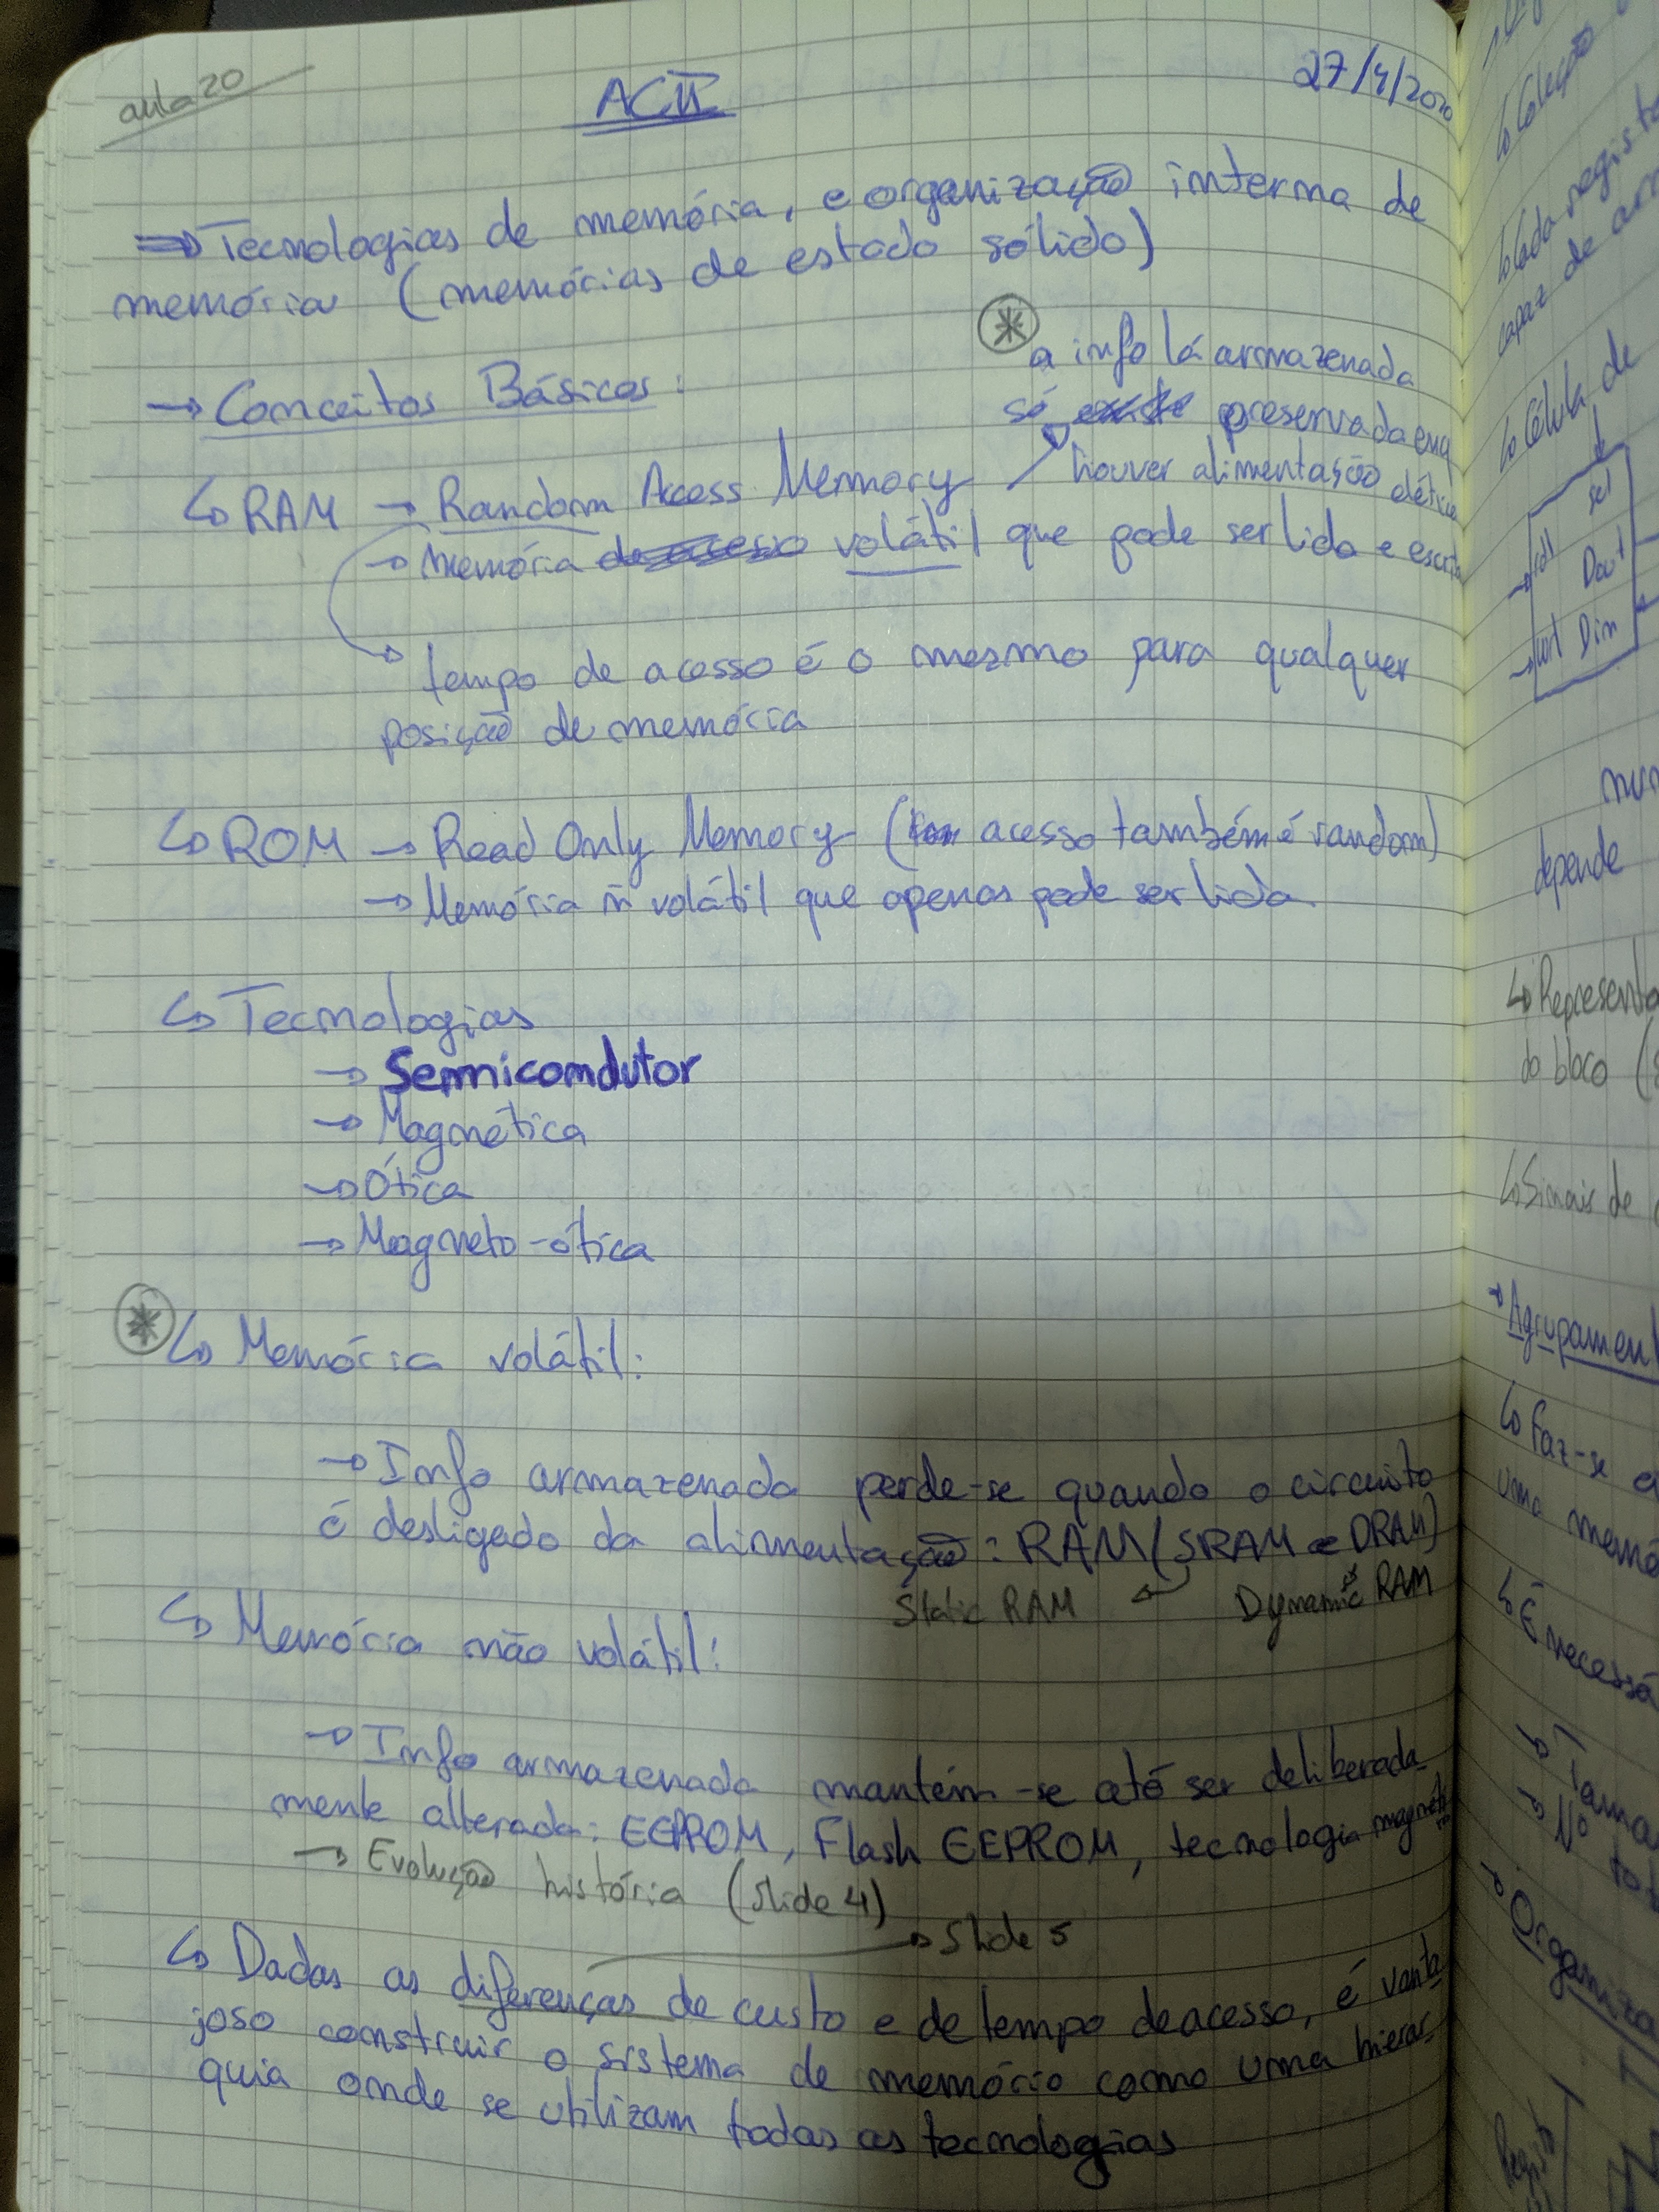 aula 20
ACII
27/4/2020
⇒ Tecnologias de memória, e organização interna de
memória (memórias de estado sólido)
→ Conceitos Básicos:
* a info lá armazenada
só preservada enq
houver alimentação elétrica
↳ RAM → Random Access Memory
→ Memória volátil que pode ser lida e escrita
→ tempo de acesso é o mesmo para qualquer
posição de memória
↳ ROM → Read Only Memory ( acesso também é random)
→ Memória ñ volátil que apenas pode ser lida.
↳ Tecnologias
→ Semicondutor
→ Magnética
→ Ótica
→ Magneto-ótica
* ↳ Memória volátil:
→ Info armazenada perde-se quando o circuito
é desligado da alimentação: RAM (SRAM e DRAM)
Static RAM Dynamic RAM
↳ Memória não volátil:
→ Info armazenada mantém-se até ser deliberada-
mente alterada: EEPROM, Flash EEPROM, tecnologia magnética
→ Evolução história (slide 4)
→ Slide 5
↳ Dadas as diferenças de custo e de tempo de acesso, é vanta-
joso construir o sistema de memória como uma hierar-
quia onde se utilizam todas as tecnologias
↳ Coleção
↳ Cada registo
capaz de
↳ Célula de
sel
rd Dout
wr Din
num
depende
↳ Representa
do bloco (
↳ Sinais de
→ Agrupamen
↳ Faz-se
uma memó
↳ É necessá
→ Tama
→ Nº tot
→ Organiza
Regist